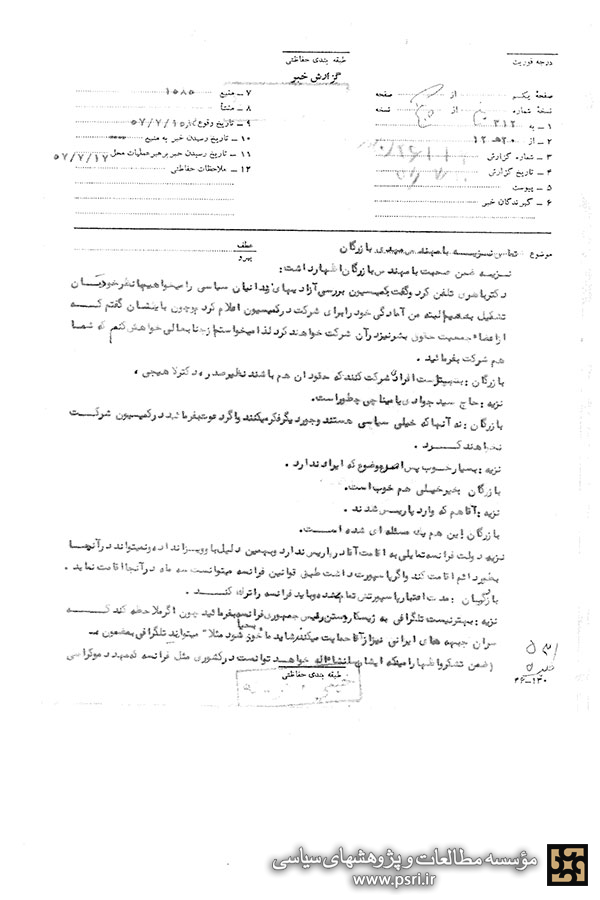 طبقه بندی حفاظتی
گزارش خبر
درجه فوریت
صفحه یکم از صفحه
نسخه شماره از نسخه
۱ ـ به ۳۱۲
۲ ـ از ۲۰ هـ ۱۲
۳ ـ شماره گزارش
۴ ـ تاریخ گزارش
۵ ـ پیوست
۶ ـ گیرندگان خبر
۷ ـ منبع ۱۰۸۵
۸ ـ منشأ
۹ ـ تاریخ وقوع ۵۷/۷/۱۵
۱۰ ـ تاریخ رسیدن خبر به منبع
۱۱ ـ تاریخ رسیدن خبر برهبر عملیات محل ۵۷/۷/۱۷
۱۲ ـ ملاحظات حفاظتی
موضوع : تماس نزیه با مهندس مهدی بازرگان
عطف
پیرو
نزیه ضمن صحبت با مهندس بازرگان اظهار داشت :
دکتر باهری تلفن کرد و گفت کمیسیون بررسی آزادیهای زندانیان سیاسی را میخواهیم
تشکیل بدهیم البته من آمادگی خود را برای شرکت در کمیسیون اعلام کردم و چون با ایشان گفتم که
از اعضاء جمعیت حقوق بشر نیز در آن شرکت خواهند کرد لذا میخواستم از جنابعالی خواهش کنم که شما
هم شرکت بفرمائید .
بازرگان : بهتر است افرادی شرکت کنند که حقوقدان هم باشند نظیر صدر و دکتر لاهیجی .
نزیه : حاج سید جوادی یا میناچی چطور است .
بازرگان : نه آنها که خیلی سیاسی هستند و جور دیگر فکر میکنند و اگر دعوت بفرمائید در کمیسیون شرکت
نخواهند کرد .
نزیه : بسیار خوب پس اصل موضوع که ایراد ندارد .
بازرگان بخیر خیلی هم خوب است .
نزیه : آقا هم که وارد پاریس شدند .
بازرگان : این هم یک مسئله ای شده است .
نزیه دولت فرانسه تمایلی به اقامت آقا در پاریس ندارد و بهمین دلیل با و ویزا نداده و نمیتواند در آنجا
بطور دائم اقامت کند و اگر پاسپورت داشت طبق قوانین فرانسه میتوانست سه ماه در آنجا اقامت نماید .
بازرگان : مدت اعتبار پاسپورتش تمام شده و باید فرانسه را ترک کند .
نزیه : بهتر نیست تلگرافی به ژیسکاردستن رئیس جمهوری فرانسه بفرمائید چون اگر ملاحظه کند که
سران جبهه های ایرانی نیز از آقا حمایت میکنند شاید مأخوذ بحیا شود مثلا" میتوانید تلگرافی بمضمون به
(ضمن تشکر و اظهار اینکه ایشان انشاءاله خواهند توانست در کشوری مثل فرانسه که مهد دموکراسی
طبقه بندی حفاظتی
۳۶ـ۱۳۰
مؤسسه مطالعات و پژوهشهای سیاسی
www.psri.ir